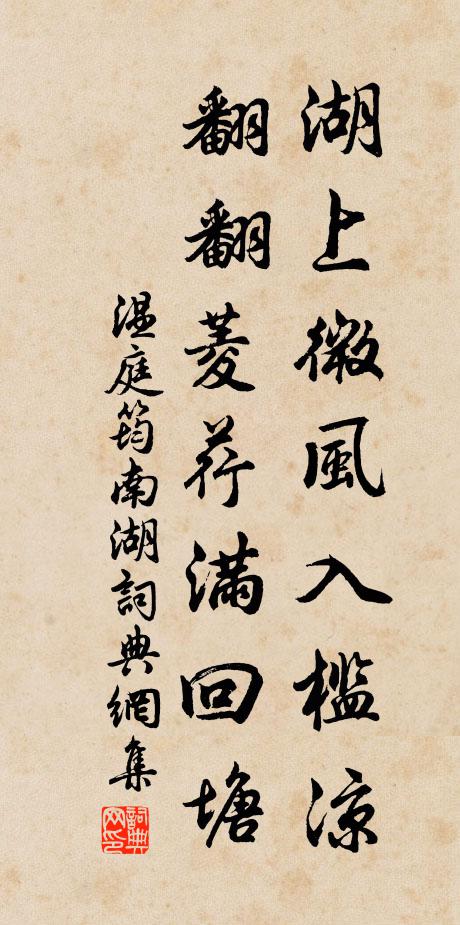 湖上微風入檻涼
翻翻菱荇滿回塘
温庭筠南湖詞典網集
詞典
网印